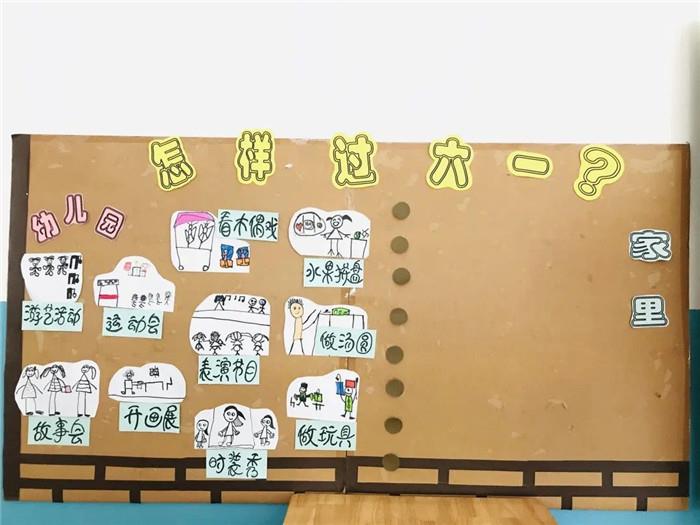 怎样过六一?
幼儿园
家里
看木偶戏
水果拼盘
游艺活动
运动会
表演节目
做汤圆
故事会
开画展
时装秀
做玩具